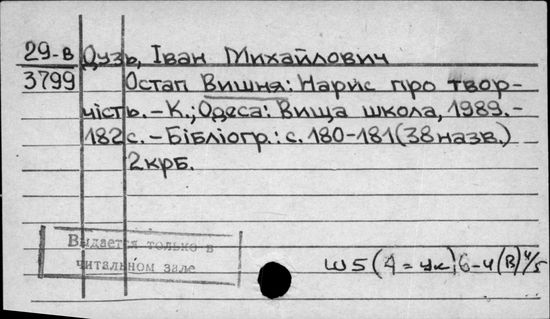 29-В Дузь, Іван Михайлович
3799 Остап Вишня: Нарис про твор-
чість. - К.; Одеса: Вища школа, 1989. -
182 с. - Бібліогр.: с. 180-181 (38 назв.)
2 крб.
Выдается только в
читальном зале
Ш5(4=УК)6-4(В) 4/5